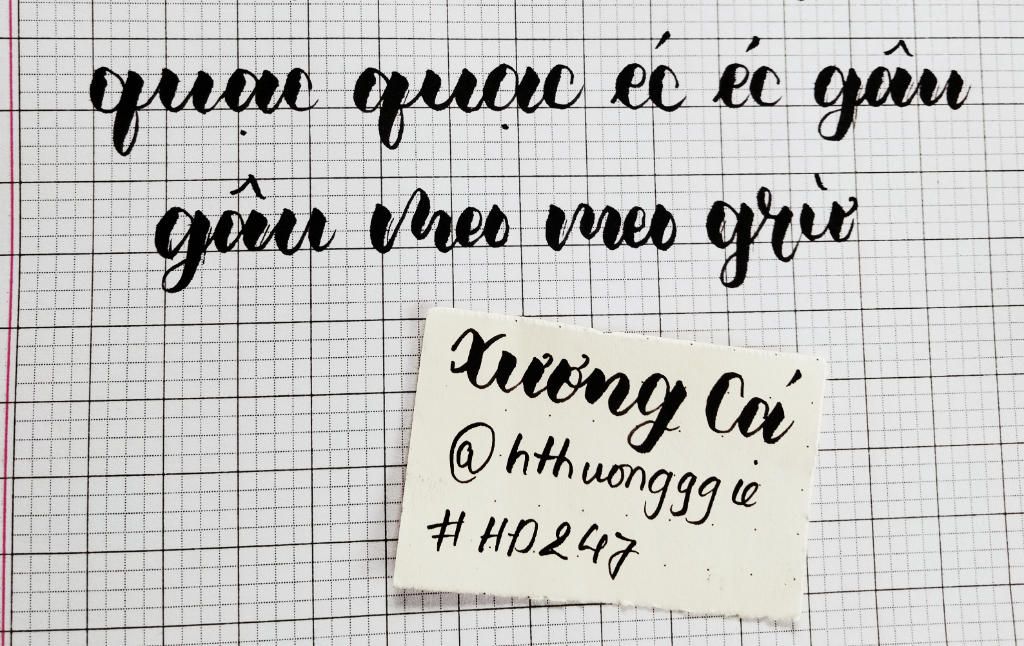 quạc quạc éc éc gâu
gâu meo meo grừ
Xương Cá
@hthuongggie
#HD247